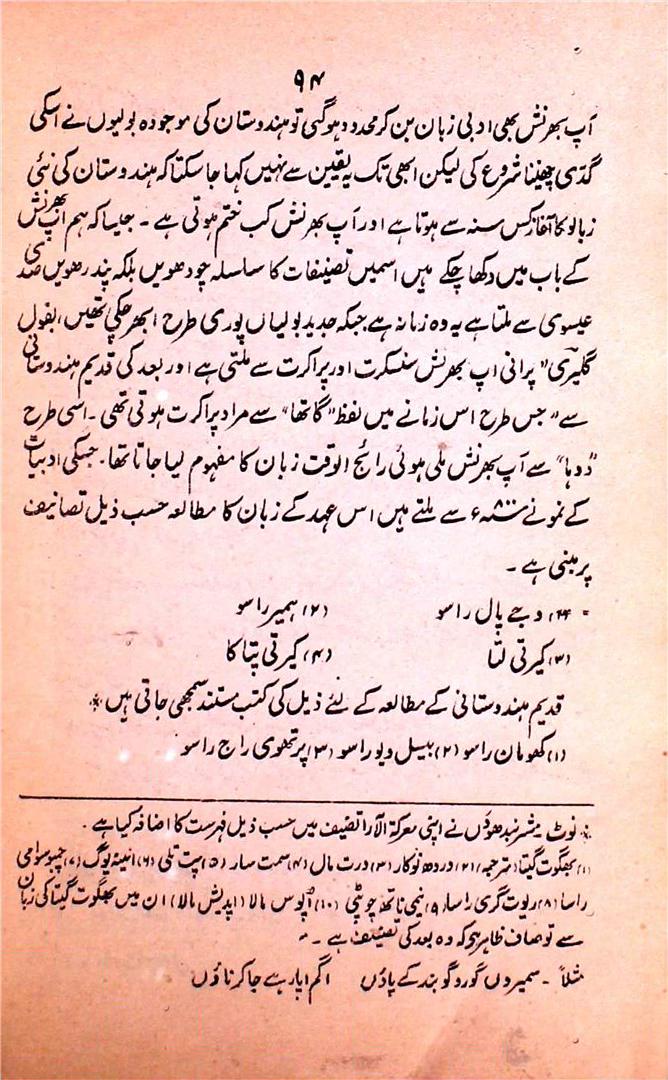 ۹۴
آپ بھرنش بھی ادبی زبان بن کر محدود ہوگئی تو ہندوستان کی موجودہ بولیوں نے اسکی
گدّی چھیننا شروع کی لیکن ابھی تک یہ یقین سے نہیں کہا جا سکتا کہ ہندوستان کی نئی
زبانوں کا آغاز کس سنہ سے ہوتا ہے اور آپ بھرنش کب ختم ہوتی ہے ۔ جیسا کہ ہم اپ بھرنش
کے باب میں دکھا چکے ہیں اسمیں تصنیفات کا سلسلہ چودھویں بلکہ پندرھویں صدی
عیسوی سے ملتا ہے یہ وہ زمانہ ہے جبکہ جدید بولیاں پوری طرح ابھر چکی تھیں، بقول
گلیری "پرانی اپ بھرنش سنسکرت اور پراکرت سے ملتی ہے اور بعد کی قدیم ہندوستانی
سے" جس طرح اس زمانے میں لفظ "گاتھا" سے مراد پراکرت ہوتی تھی ۔ اسی طرح
"دوہا" سے آپ بھرنش ملی ہوئی رائج الوقت زبان کا مفہوم لیا جاتا تھا۔ جسکی ادبیات
کے نمونے سے ملتے ہیں اس عہد کے زبان کا مطالعہ حسب ذیل تصانیف
پر مبنی ہے ۔
وجے پال راسو (۲) ہمیر راسو
(۳) کیرتی لتا (۴) کیرتی پتاکا
قدیم ہندوستانی کے مطالعہ کے لئے ذیل کی کتب مستند سمجھی جاتی ہیں *
(۱) کھومان راسو (۲) بیسل دیو راسو (۳) پرتھوی راج راسو
* نوٹ مشربندھوؤں نے اپنی معرکۃ الآرا تصنیف میں حسب ذیل فہرست کا اضافہ کیا ہے ۔
(۱) بھگوت گیتا (ترجمہ) (۲) وردھ نوکار (۳) ورت مال (۴) سمت سار (۵) پت تلی (۶) انیتہ یوگ (۷) جمبو سوامی
راسا (۸) ریوت گری راسا، (۹) نیمی ناتھ چوپئی (۱۰) اُپوس مالا (اپدیش مالا) ان میں بھگوت گیتا کی زبان
سے تو صاف ظاہر ہے کہ وہ بعد کی تصنیف ہے ۔
مثلاً ۔ سمیروں گورو گوبند کے پاؤں اگم اپار ہے جاکر ناؤں